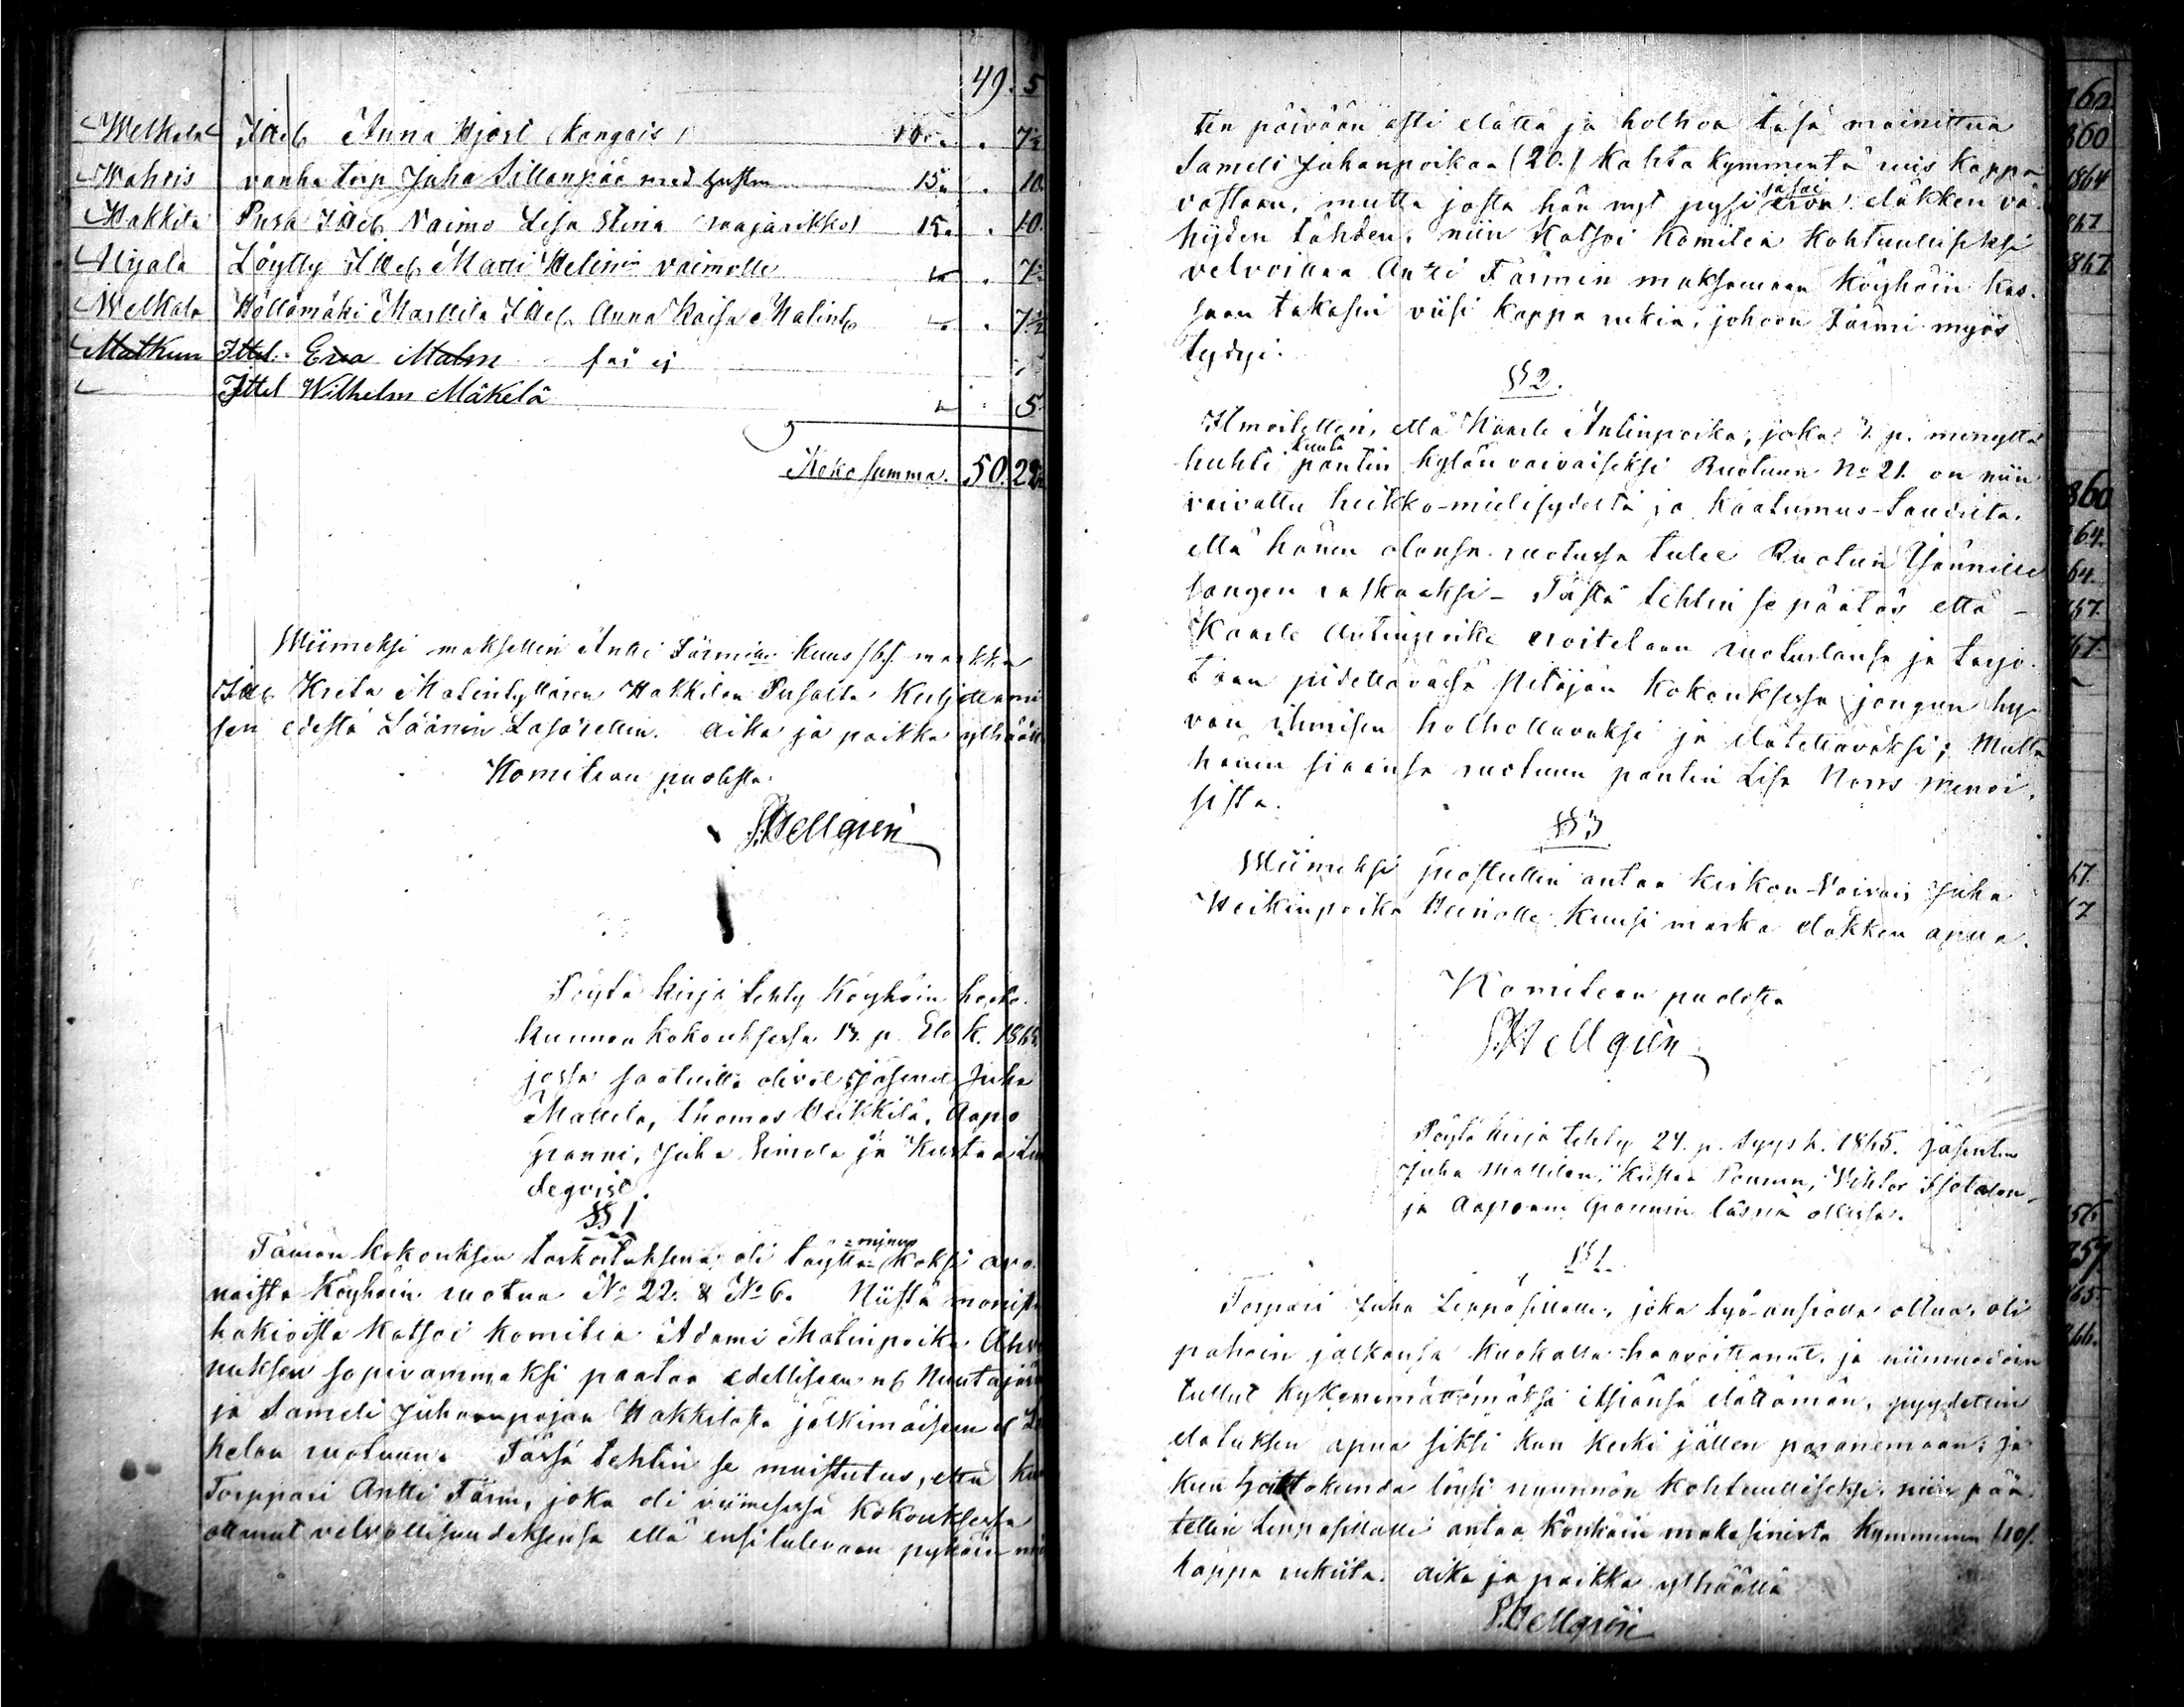 49. 5
Welkala Ittel Anna Hjort Kangais 10. . 7½
Wahois vanha torp Juha Sillanpää med hustru 15. . 10.
Hakkila Pusa Ittel Vaimo Lisa Stina raajarikko 15. . 10.
Uijala Löytty Ittel Matti Helinin vaimolle . 7½
Welkala Höllömäki Marttila Ittel Anna Kaisa Malint . 7½
Matkun Ittel. Eva Malm får ej
Ittel Wilhelm Mäkelä 5.
Koko summa. 50. 22½
Wiimeksi maksettin Antti Färmin kuus (6) markka
Itel. Kreta Matintyttären Hakkilan Pusalta kuljettami
sen edestä Läänin Lasarettin. Aika ja paikka ylhäällä
Komitean puolesta.
Hellgrén
Pöytä kirja tehty Köyhäin hoito
kunnan kokouksessa 13. p. Elo k. 1865
jossa saatuilla olivat jäsenet Juha
Mattila, Thomas Heikkilä, Aapo
Granni, Juha Simola ja Kustaa Lin
deqvist.
§§ 1
Tämän kokouksen tarkoituksena oli täyttäminen kaksi avo
naista Köyhäin ruotua No 22. & No 6. Niistä monista
hakioista katsoi komitea Adami Matinpoika Ahve
nuksen sopivammaksi paataa edelliseen nb Nuutajärv
ja Sameli Juhaanpojan Hakkilasta jälkimäiseen el
kelan ruotuun. Tässä tehtin se muistutus, että kun
Torppari Antti Färm, joka oli viimesessä kokouksessa
ottanut velvollisuudeksensa että ensitulevaan pyhäin mi
ten päivään asti elättä ja holhoa täsä mainittua
Sameli Juhanpoikaa (20.) kahta kymmentä ruis kappa
vastaan, mutta josta hän nyt pysi eroa eläkken vä
hyyden tähden, niin katsoi komitea kohtuulliseksi
velvoittaa Antti Färmin maksamaan Köyhäin kas
saan takasin viisi kappa rukia, johoon Färmi myös
tydyi.
§§ 2.
Ilmoitettin, että Kaarle Antinpoika, joka 3. p. mennyttä
huhti kuuta pantin kylän vaivaiseksi Ruotuun No 21. on niin
vaivattu heikko-mielisydestä ja kaatumus-taudista,
että hänen olonsa ruotussa tulee Ruotun Isännille
sangen raskaaksi - Tästä tehtin se päätös että -
Kaarle Antinpoika eroitetaan ruotustansa ja tarjo
taan pidettävässä pitäjän kokouksessa jongun hy
vän ihmisen holhottavaksi ja elätettäväksi; Mutta
hänen siaansa ruotuun pantin Lisa Norrs Menoi,
sista.
§§ 3
Wiimeksi suostuttin antaa kirkon-Vaivais Juha
Heikinpoika Heinolle kuusi marka eläkken apua.
Komitean puolesta
Hellgrén
Pöytä kirja tehty 24. p. Syys k. 1865. Jäsenten
Juha Mattilan, Kustaa Pounun, Vihtor Isotalon,
ja Aapraam Grannin läsnä ollessa.
§§ 1.
Torpari Juha Leppäsillalle, joka työ-ansiolla oltua, oli
pahoin jalkansa kuokalla haavoittanut, ja niinmuodoin
tullut kykenemättömäksi itsiänsä elättämän, pyydettin
elatuksen apua siksi kun kerki jällen paranemaan; Ja
kun hoitokunda löysi anunnön kohtuulliseksi, niin pää
tettin Leppäsillalle antaa Köyhäin makasinista kymmenen (10).
kappa rukiita. Aika ja paikka ylhäällä
Hellgrén